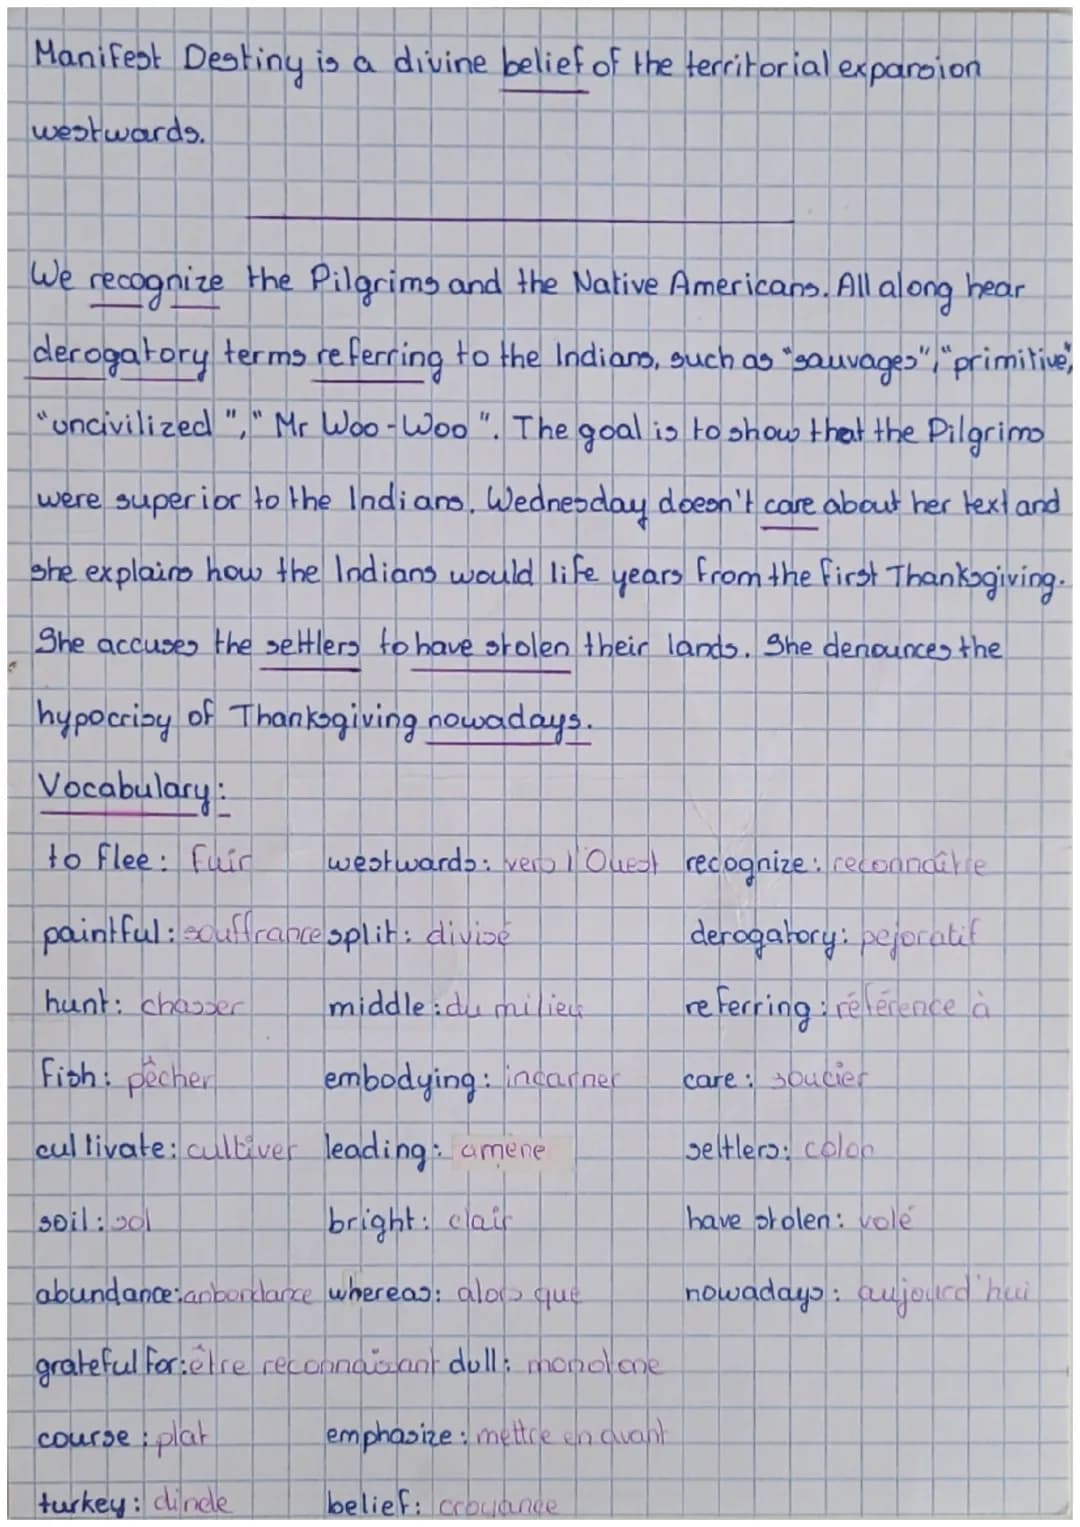 Manifest Destiny is a divine belief of the territorial expansion
westwards.
We recognize the Pilgrims and the Native Americans. All along hear
derogatory terms referring to the Indians, such as "sauvages", "primitive",
"uncivilized", "Mr Woo-Woo". The goal is to show that the Pilgrims
were superior to the Indians. Wednesday doesn't care about her text and
she explains how the Indians would life years from the first Thanksgiving.
She accuses the settlers to have stolen their lands. She denounces the
hypocrisy of Thanksgiving nowadays.
Vocabulary:
to flee: fuir westwards: vers l'Ouest recognize: reconnaître
paintful: souffrance split: divisé derogatory: pejoratif
hunt: chasser middle: du milieu referring: référence à
fish: pêcher embodying: incarner care: soucier
cultivate: cultiver leading: amène settlers: colon
soil: sol bright: clair have stolen: volé
abundance: anbondance whereas: alors que nowadays: aujourd'hui
grateful for: être reconnaisant dull: monotone
course: plat emphasize: mettre en avant
turkey: dinde belief: croyance